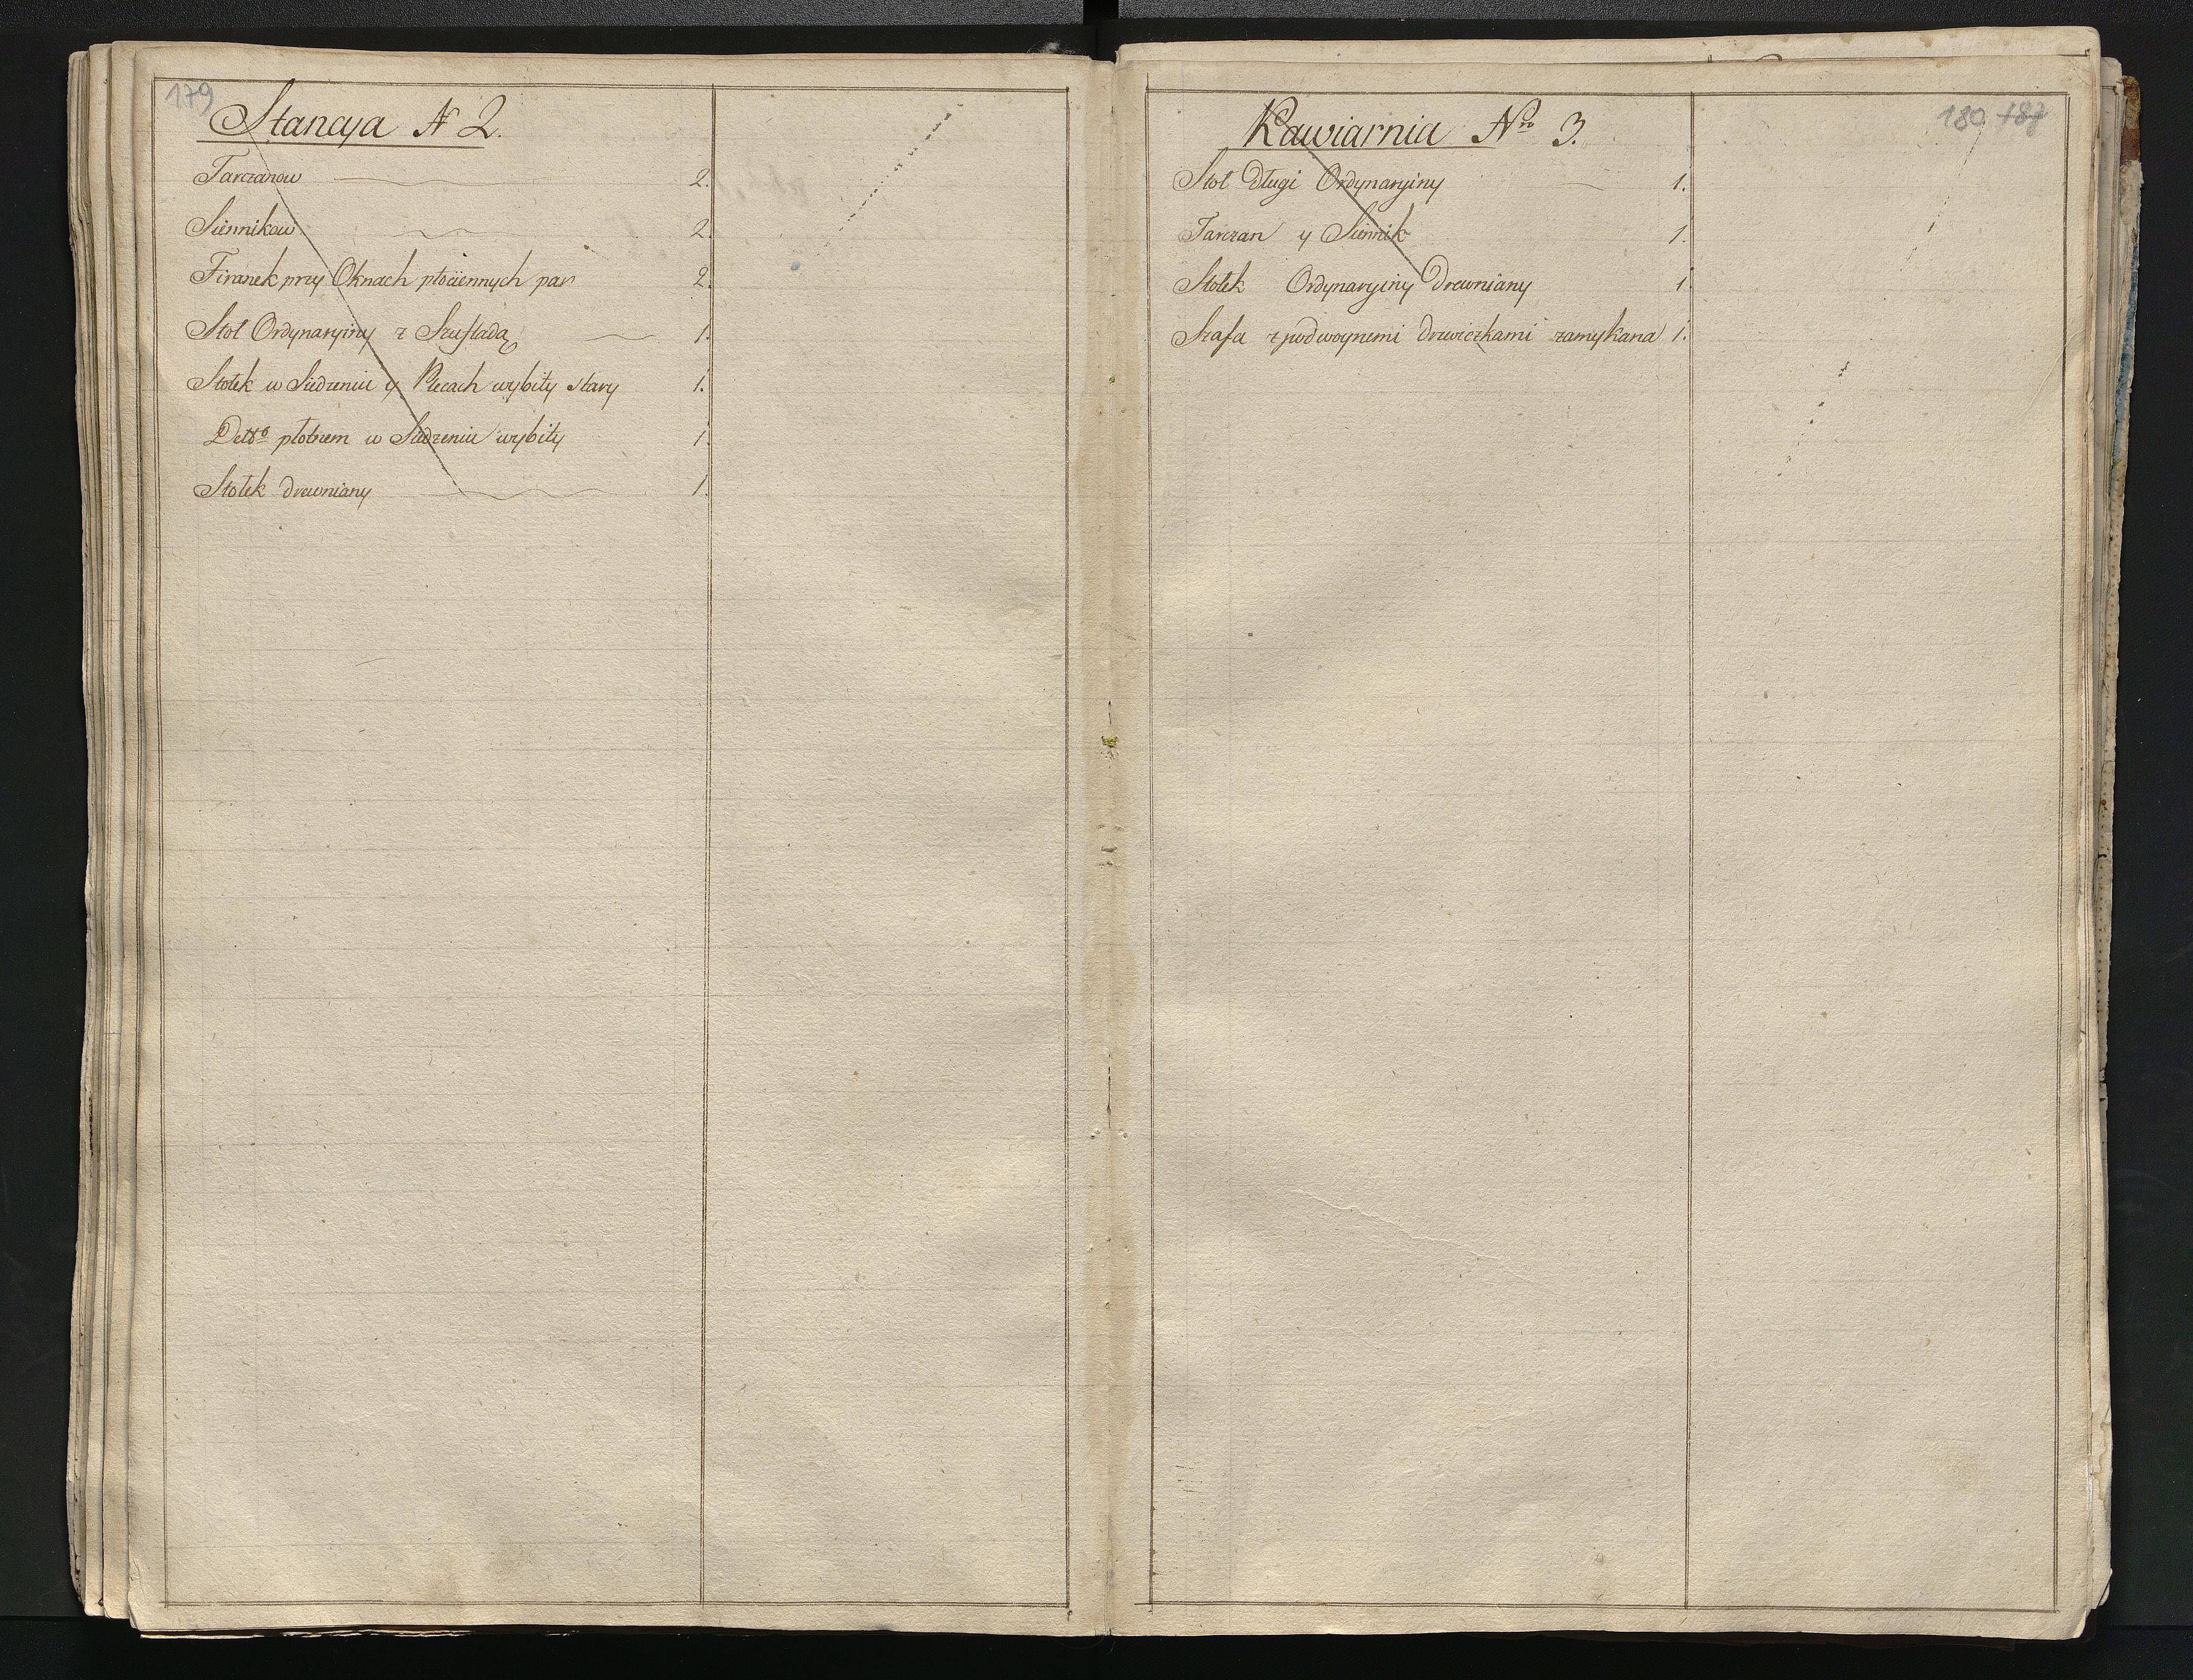 179
Stancya N 2.
Tarczanow 2.
Siennikow 2.
Firanek przy Oknach płociennych par 2.
Stoł Ordynaryiny z Szufladą 1.
Stołek w Siedzeniu y Plecach wybity stary 1.
Detto płotnem w Siedzeniu wybity 1.
Stołek drewniany 1.
180 187
Kawiarnia Nro 3.
Stoł długi Ordynaryiny 1.
Tarczan y Siennik 1.
Stołek Ordynaryiny Drewniany 1.
Szafa z podwoynemi drzwiczkami zamykana 1.